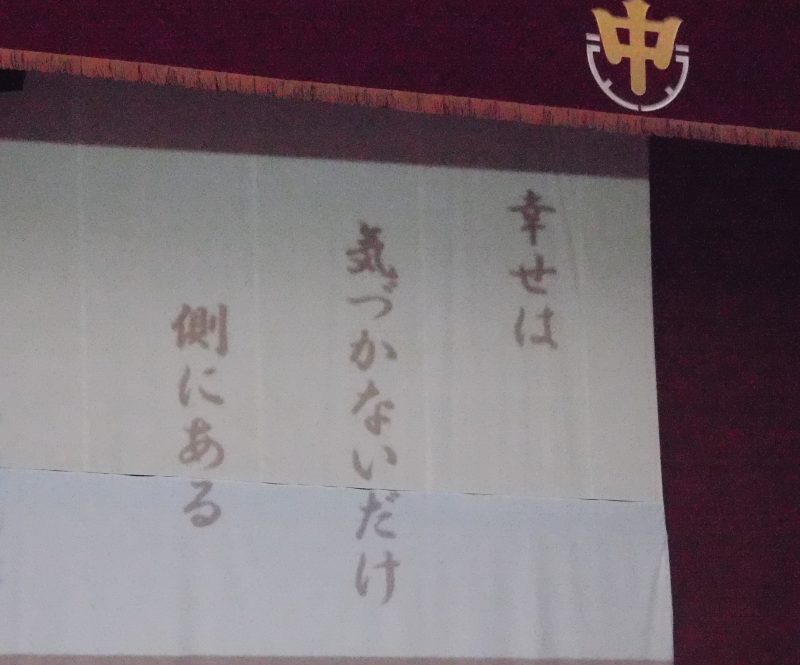 中
幸せは
気づかないだけ
側にある